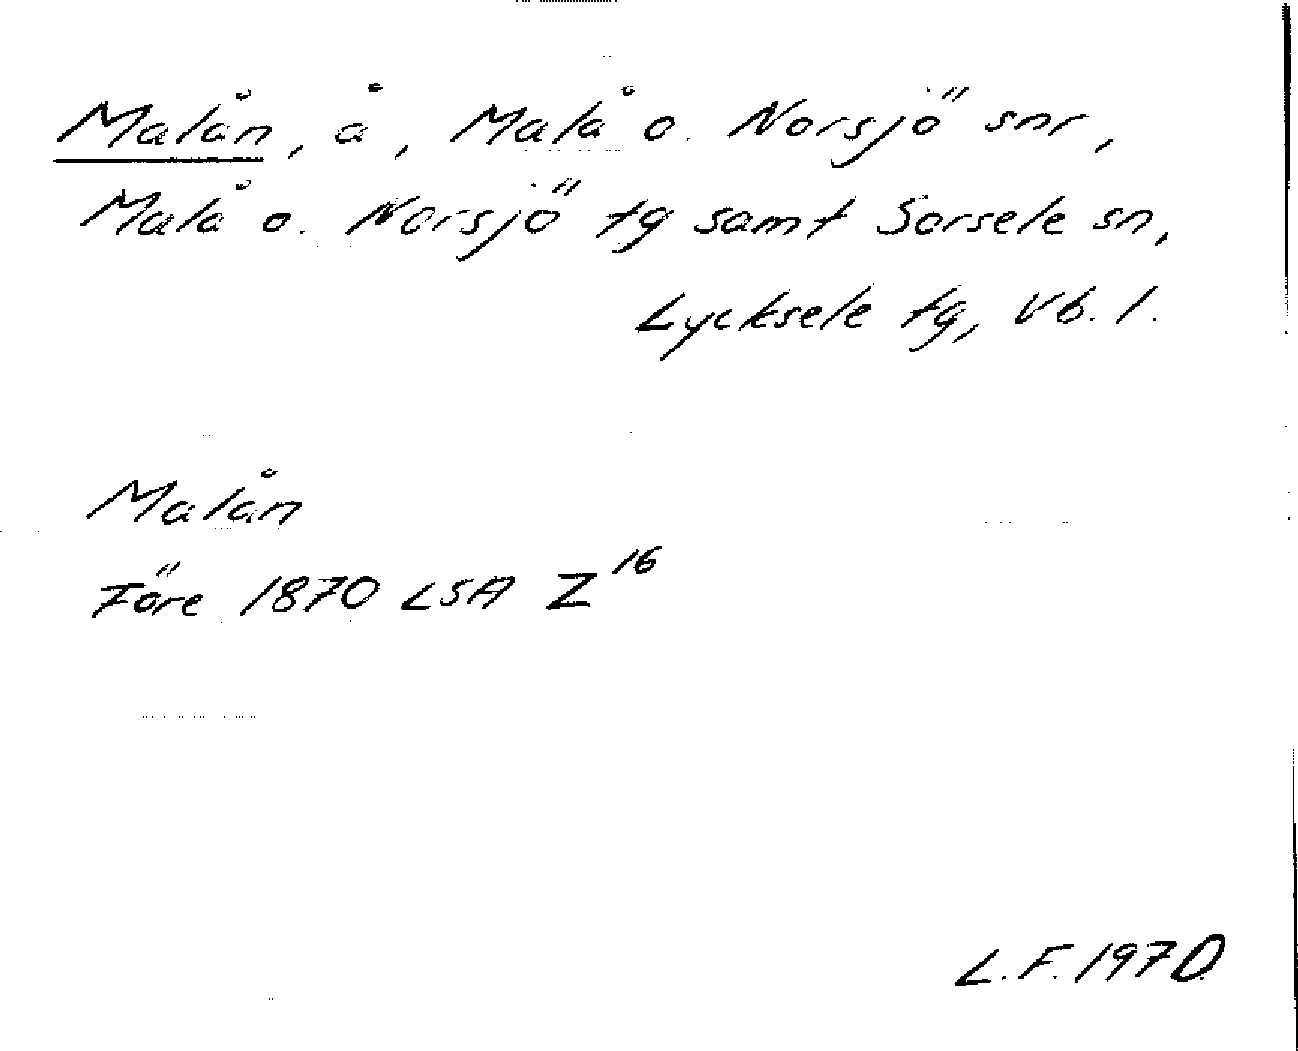 Malån, å, Malå o. Norsjö snr,
Malå o. Norsjö tg samt Sorsele sn,
Lycksele tg, Vb. l.
Malån
Före 1870 LSA Z16
L.F. 1970